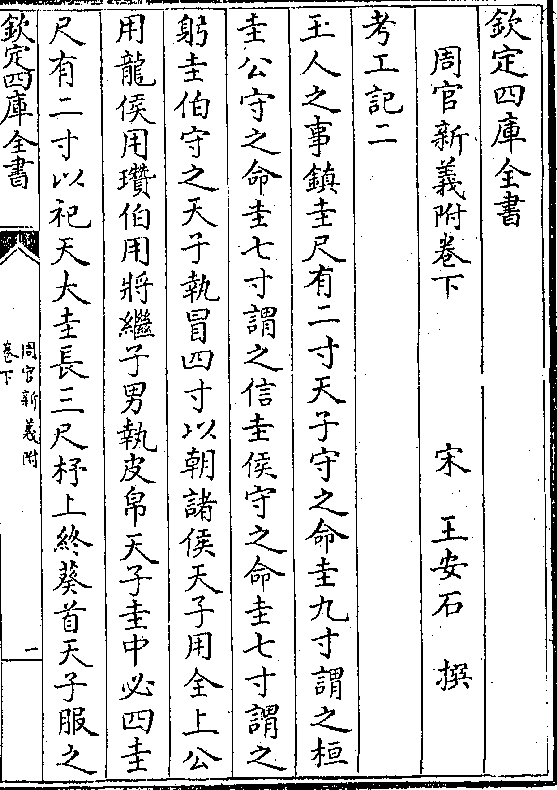 欽定四庫全書
周官新義附卷下
宋　王安石　撰
考工記二
玉人之事鎮圭尺有二寸天子守之命圭九寸謂之桓
圭公守之命圭七寸謂之信圭侯守之命圭七寸謂之
躬圭伯守之天子執冒四寸以朝諸侯天子用全上公
用龍侯用瓚伯用將繼子男執皮帛天子圭中必四圭
尺有二寸以祀天大圭長三尺杼上終葵首天子服之
欽定四庫全書
周官新義附
卷下
一